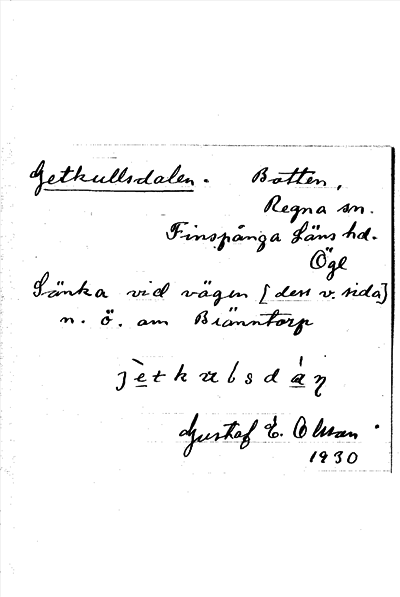 Getkullsdalen. Botten,
Regna sn.
Finspånga Läns hd.
Ögl
Sänka vid vägen [dess v. sida]
n. ö. om Bränntorp
Gustaf E. Olsson
1930